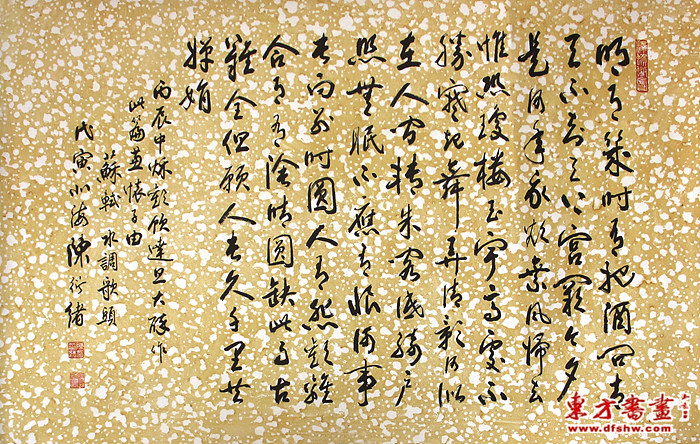 明月幾時有把酒問青
天不知天上宮闕今夕
是何年我欲乘風歸去
惟恐瓊樓玉宇高處不
勝寒起舞弄清影何似
在人間轉朱閣低綺戶
照無眠不應有恨何事
長向別時圓人有悲歡離
合月有陰晴圓缺此事古
難全但願人長久千里共
嬋娟
丙辰中秋歡飲達旦大醉作
此篇兼懷子由
蘇軾水調歌頭
戊寅北海陳衍緒
東方書畫
www.dfshw.com